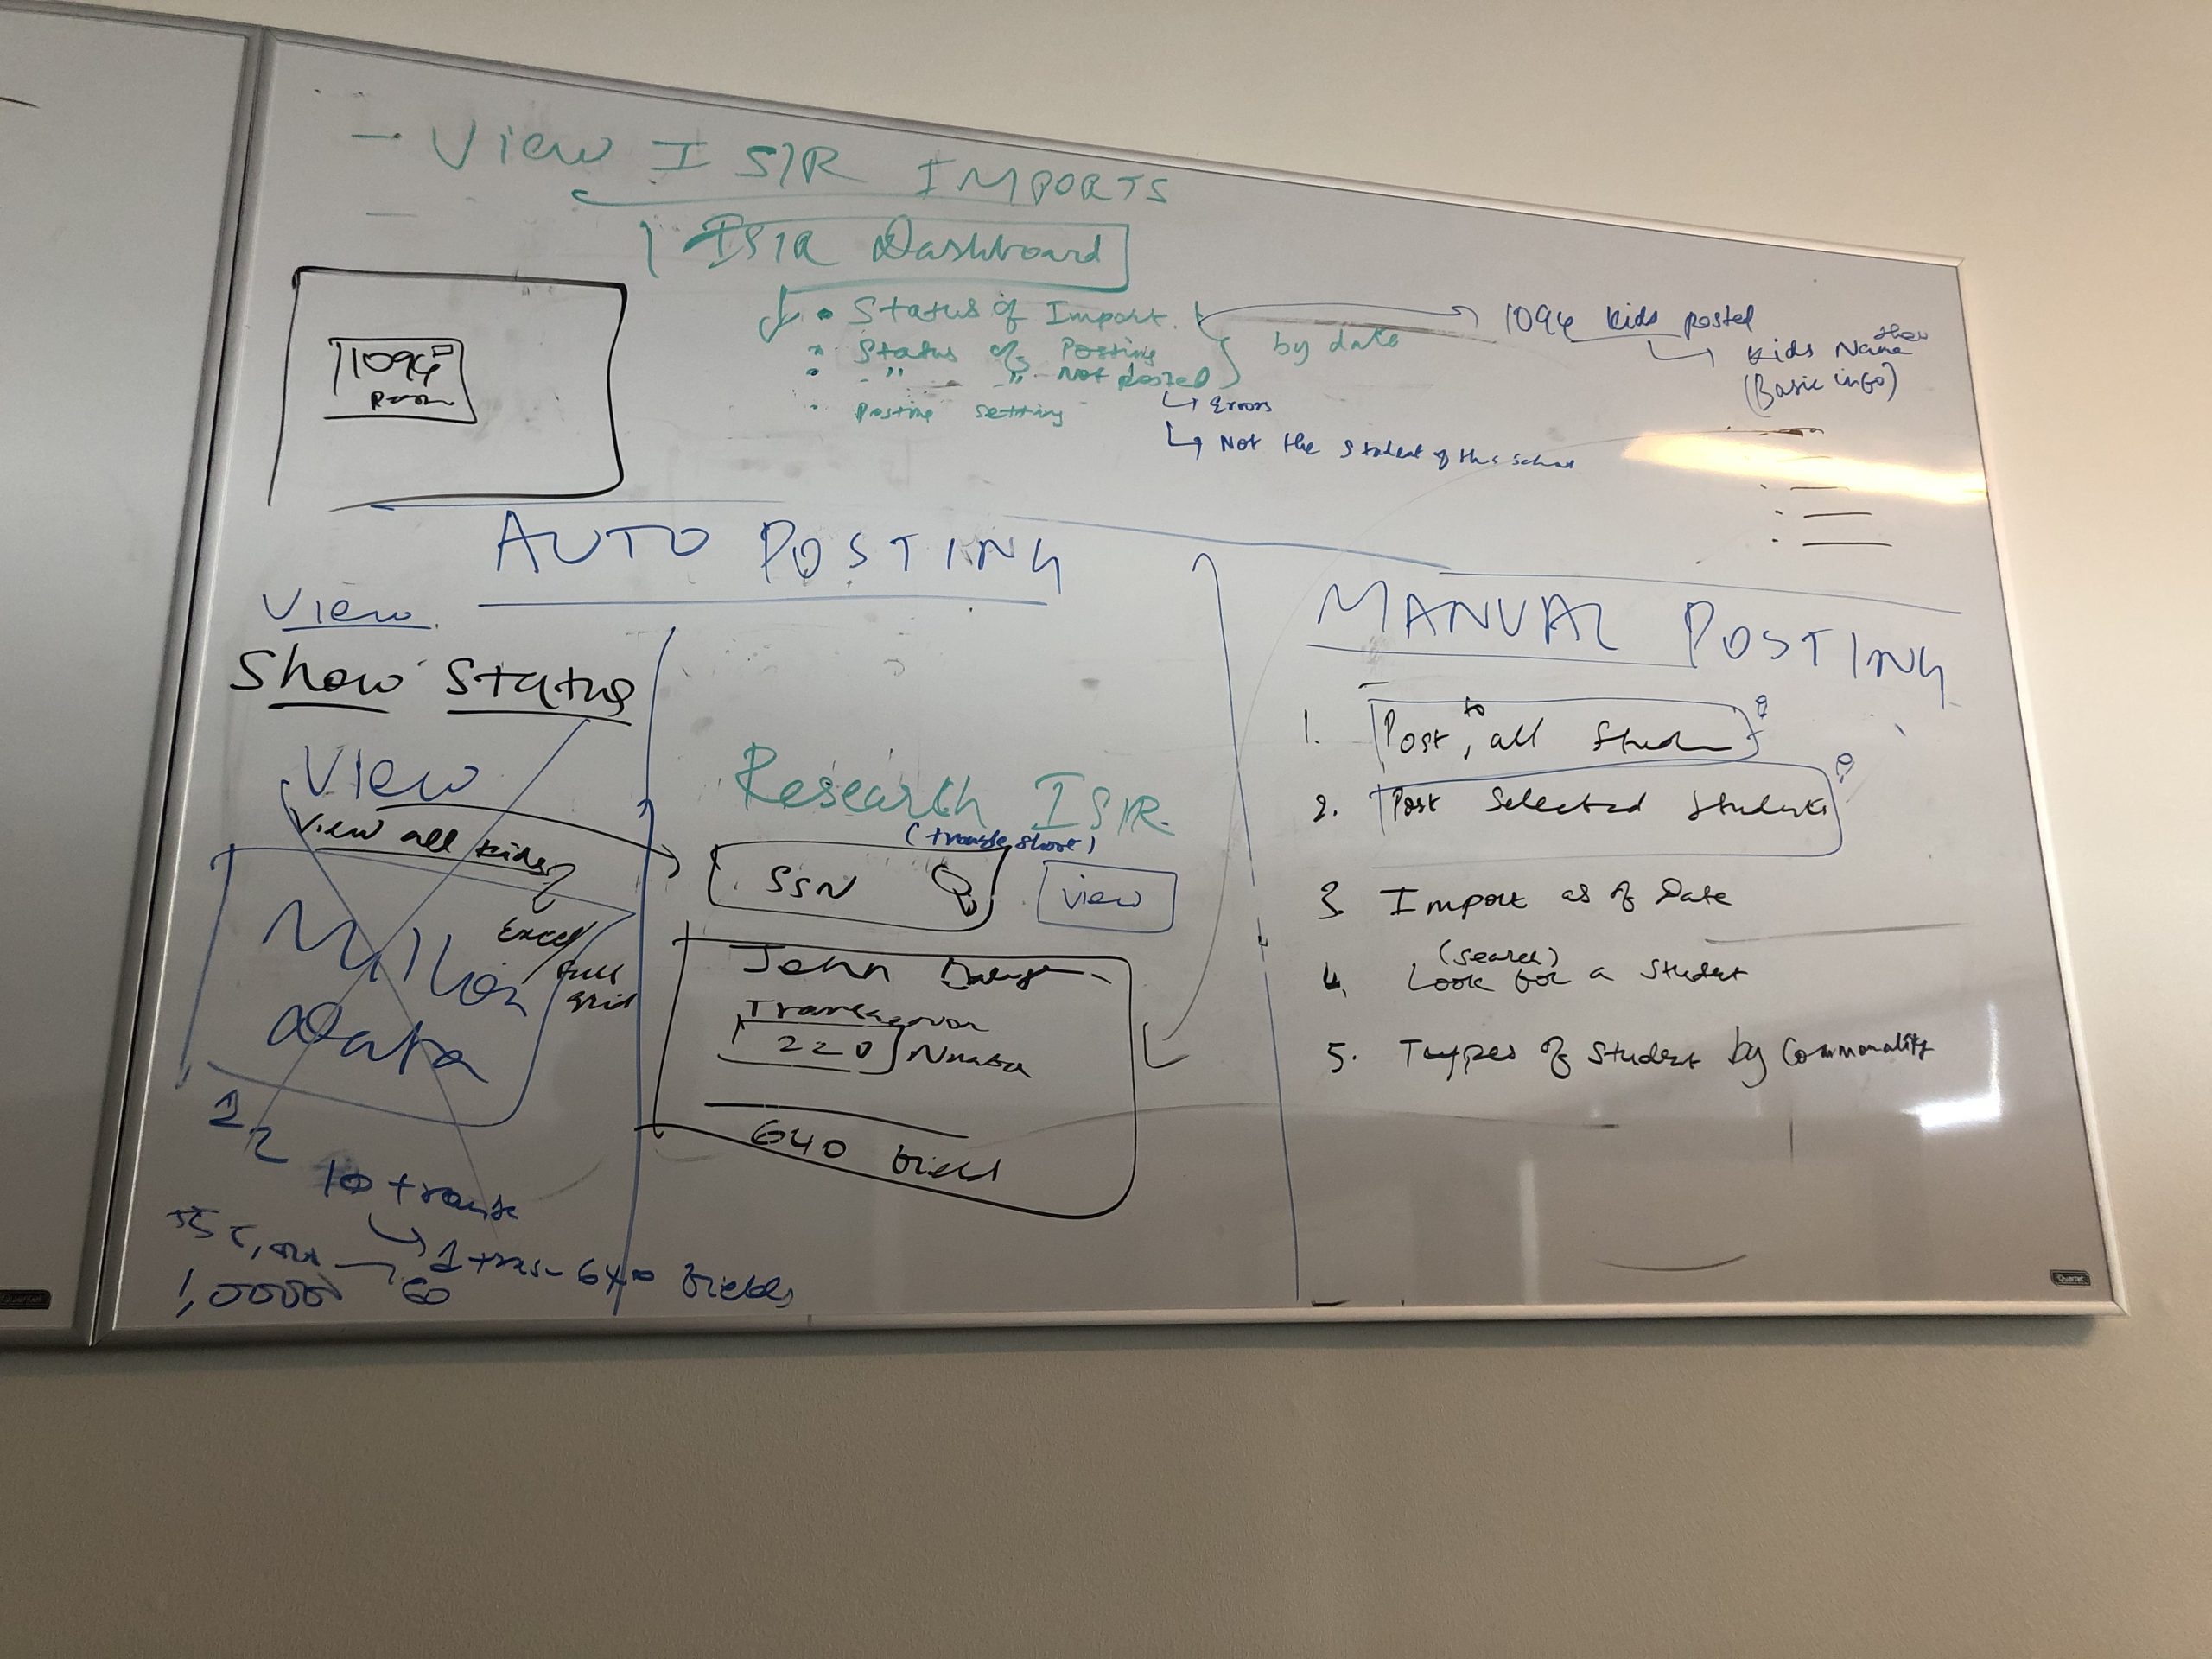 - View ISIR IMPORTS
ISIR Dashboard
• Status of Import
• Status of Posting
• " " Not posted
• Posting setting
by date
↳ Errors
↳ Not the Student of this school
1094 kids posted
↳ Kids Name
(Basic info)
1094
AUTO POSTING
View
Show Status
View
View all kids
Excel/
full
grid
Million
Data
10 trans
1 trans - 640 fields
60
Research ISIR
(trouble shoot)
SSN
View
John
Transaction
220
640 field
MANUAL POSTING
1. Post to all
2. Post Selected Students
3. Import as of Date
(Search)
4. Look for a Student
5. Taypes of Student by Commonality
Quartet